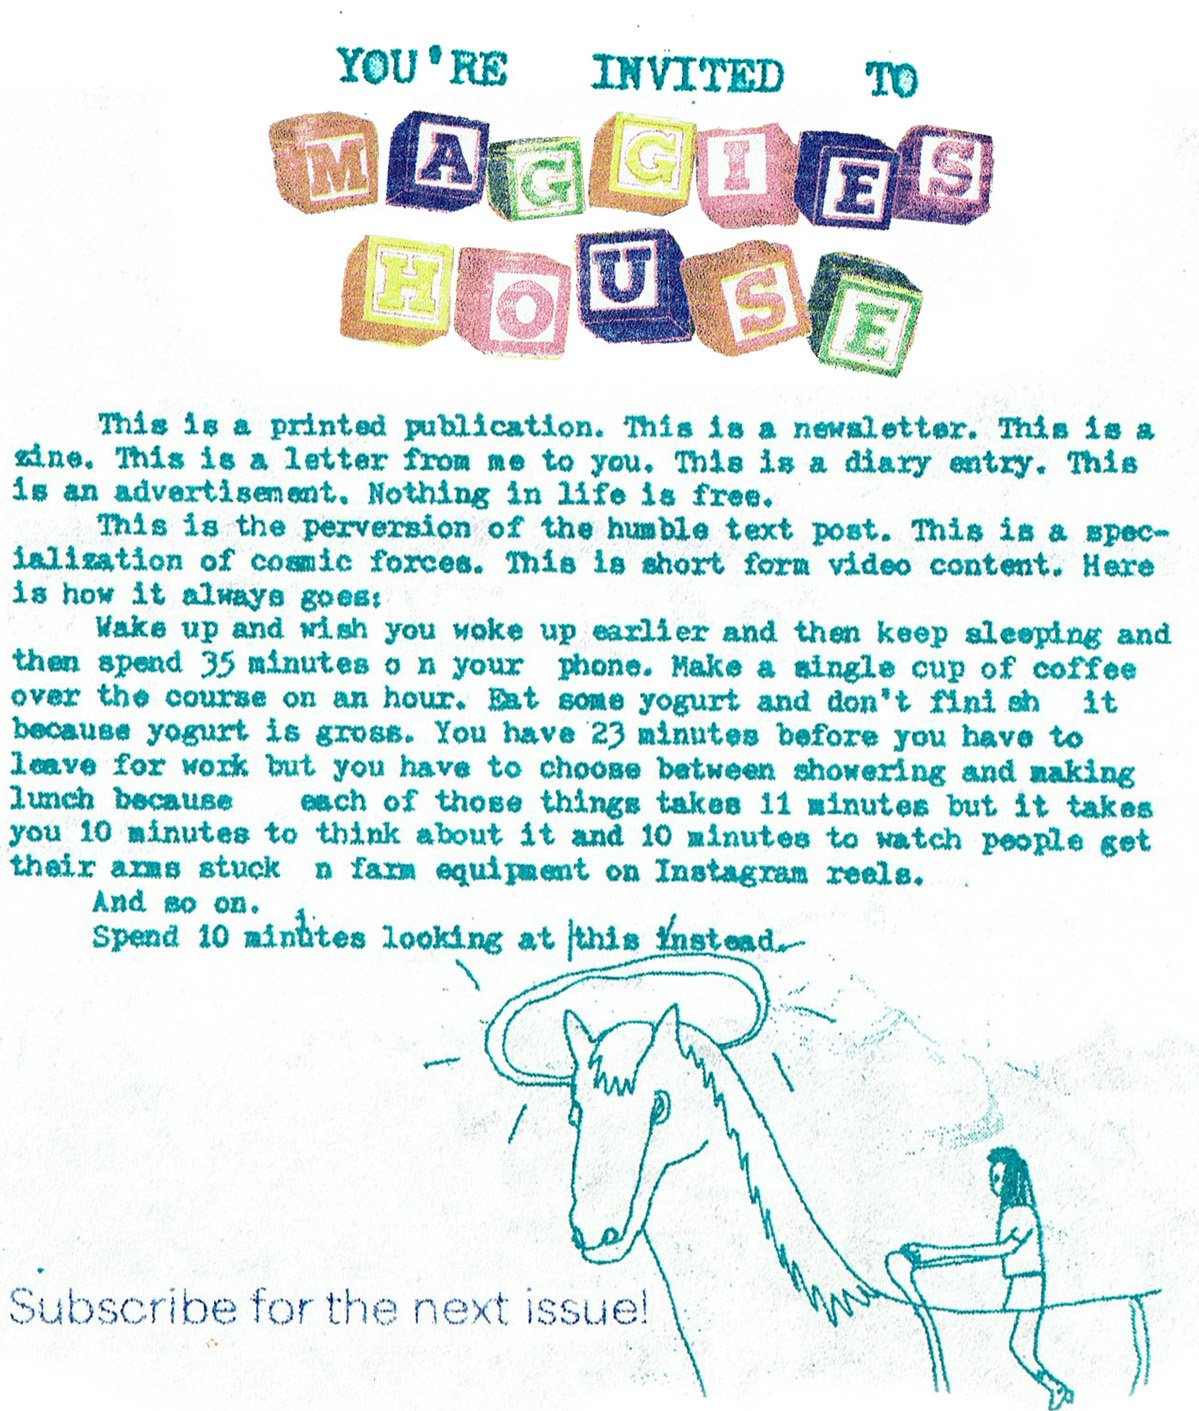 YOU'RE INVITED TO
MAGGIES
HOUSE
This is a printed publication. This is a newsletter. This is a
zine. This is a letter from me to you. This is a diary entry. This
is an advertisement. Nothing in life is free.
This is the perversion of the humble text post. This is a spec-
ialization of cosmic forces. This is short form video content. Here
is how it always goes:
Wake up and wish you woke up earlier and then keep sleeping and
then spend 35 minutes o n your phone. Make a single cup of coffee
over the course on an hour. Eat some yogurt and don't fini sh it
because yogurt is gross. You have 23 minutes before you have to
leave for work but you have to choose between showering and making
lunch because each of those things takes 11 minutes but it takes
you 10 minutes to think about it and 10 minutes to watch people get
their arms stuck n farm equipment on Instagram reels.
And so on.
Spend 10 minutes looking at this instead.
Subscribe for the next issue!